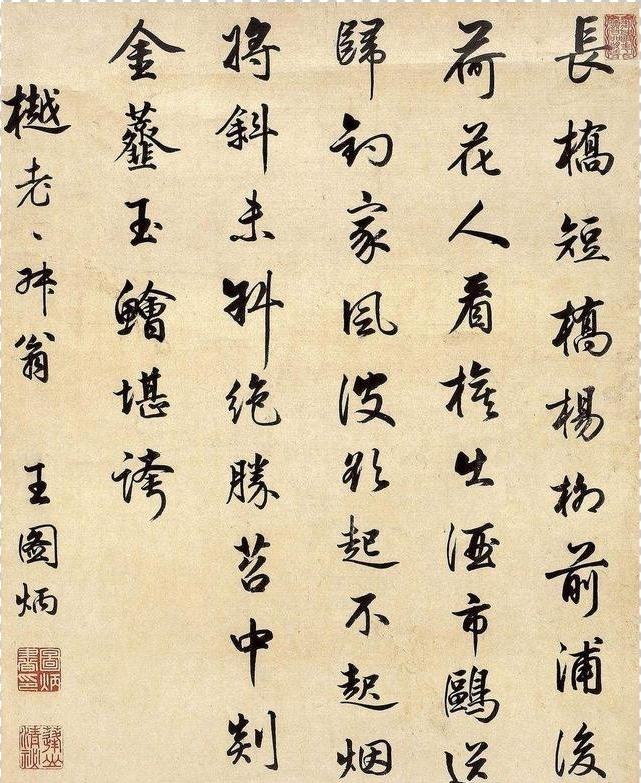 長橋短橋楊柳前浦後
荷花人看旗出酒市鷗送
歸釣家風波欲起不起烟
將斜未斜絶勝苕中剡
金虀玉鱠堪誇
樾老、㛷翁
王圖炳